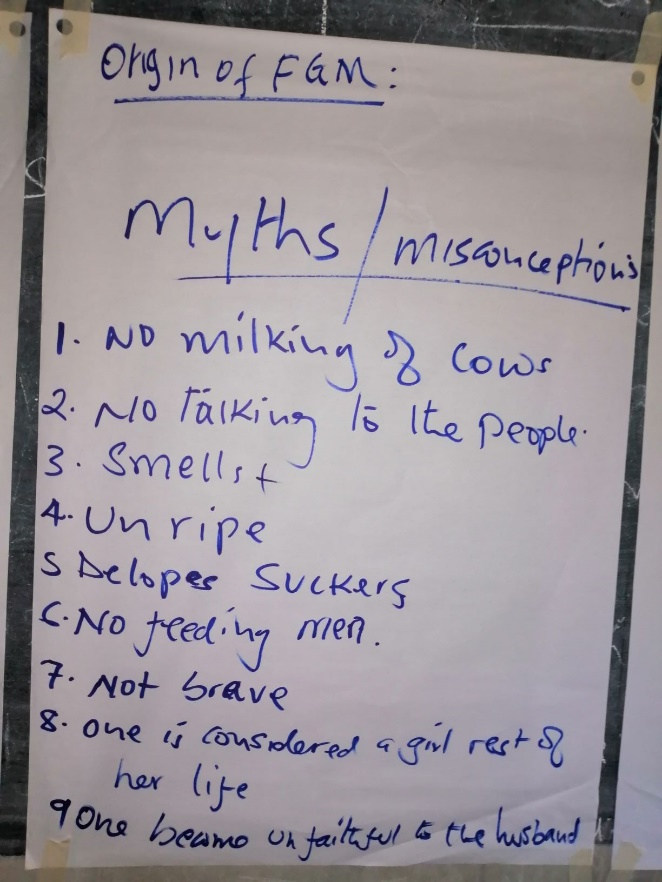 Origin of FGM:
Myths / misconceptions
1. No milking of cows
2. No talking to the people.
3. Smells
4. Unripe
5 Delopes suckers
6. No feeding men.
7. Not brave
8. one is considered a girl rest of
her life
9 One becomo unfaithful to the husband